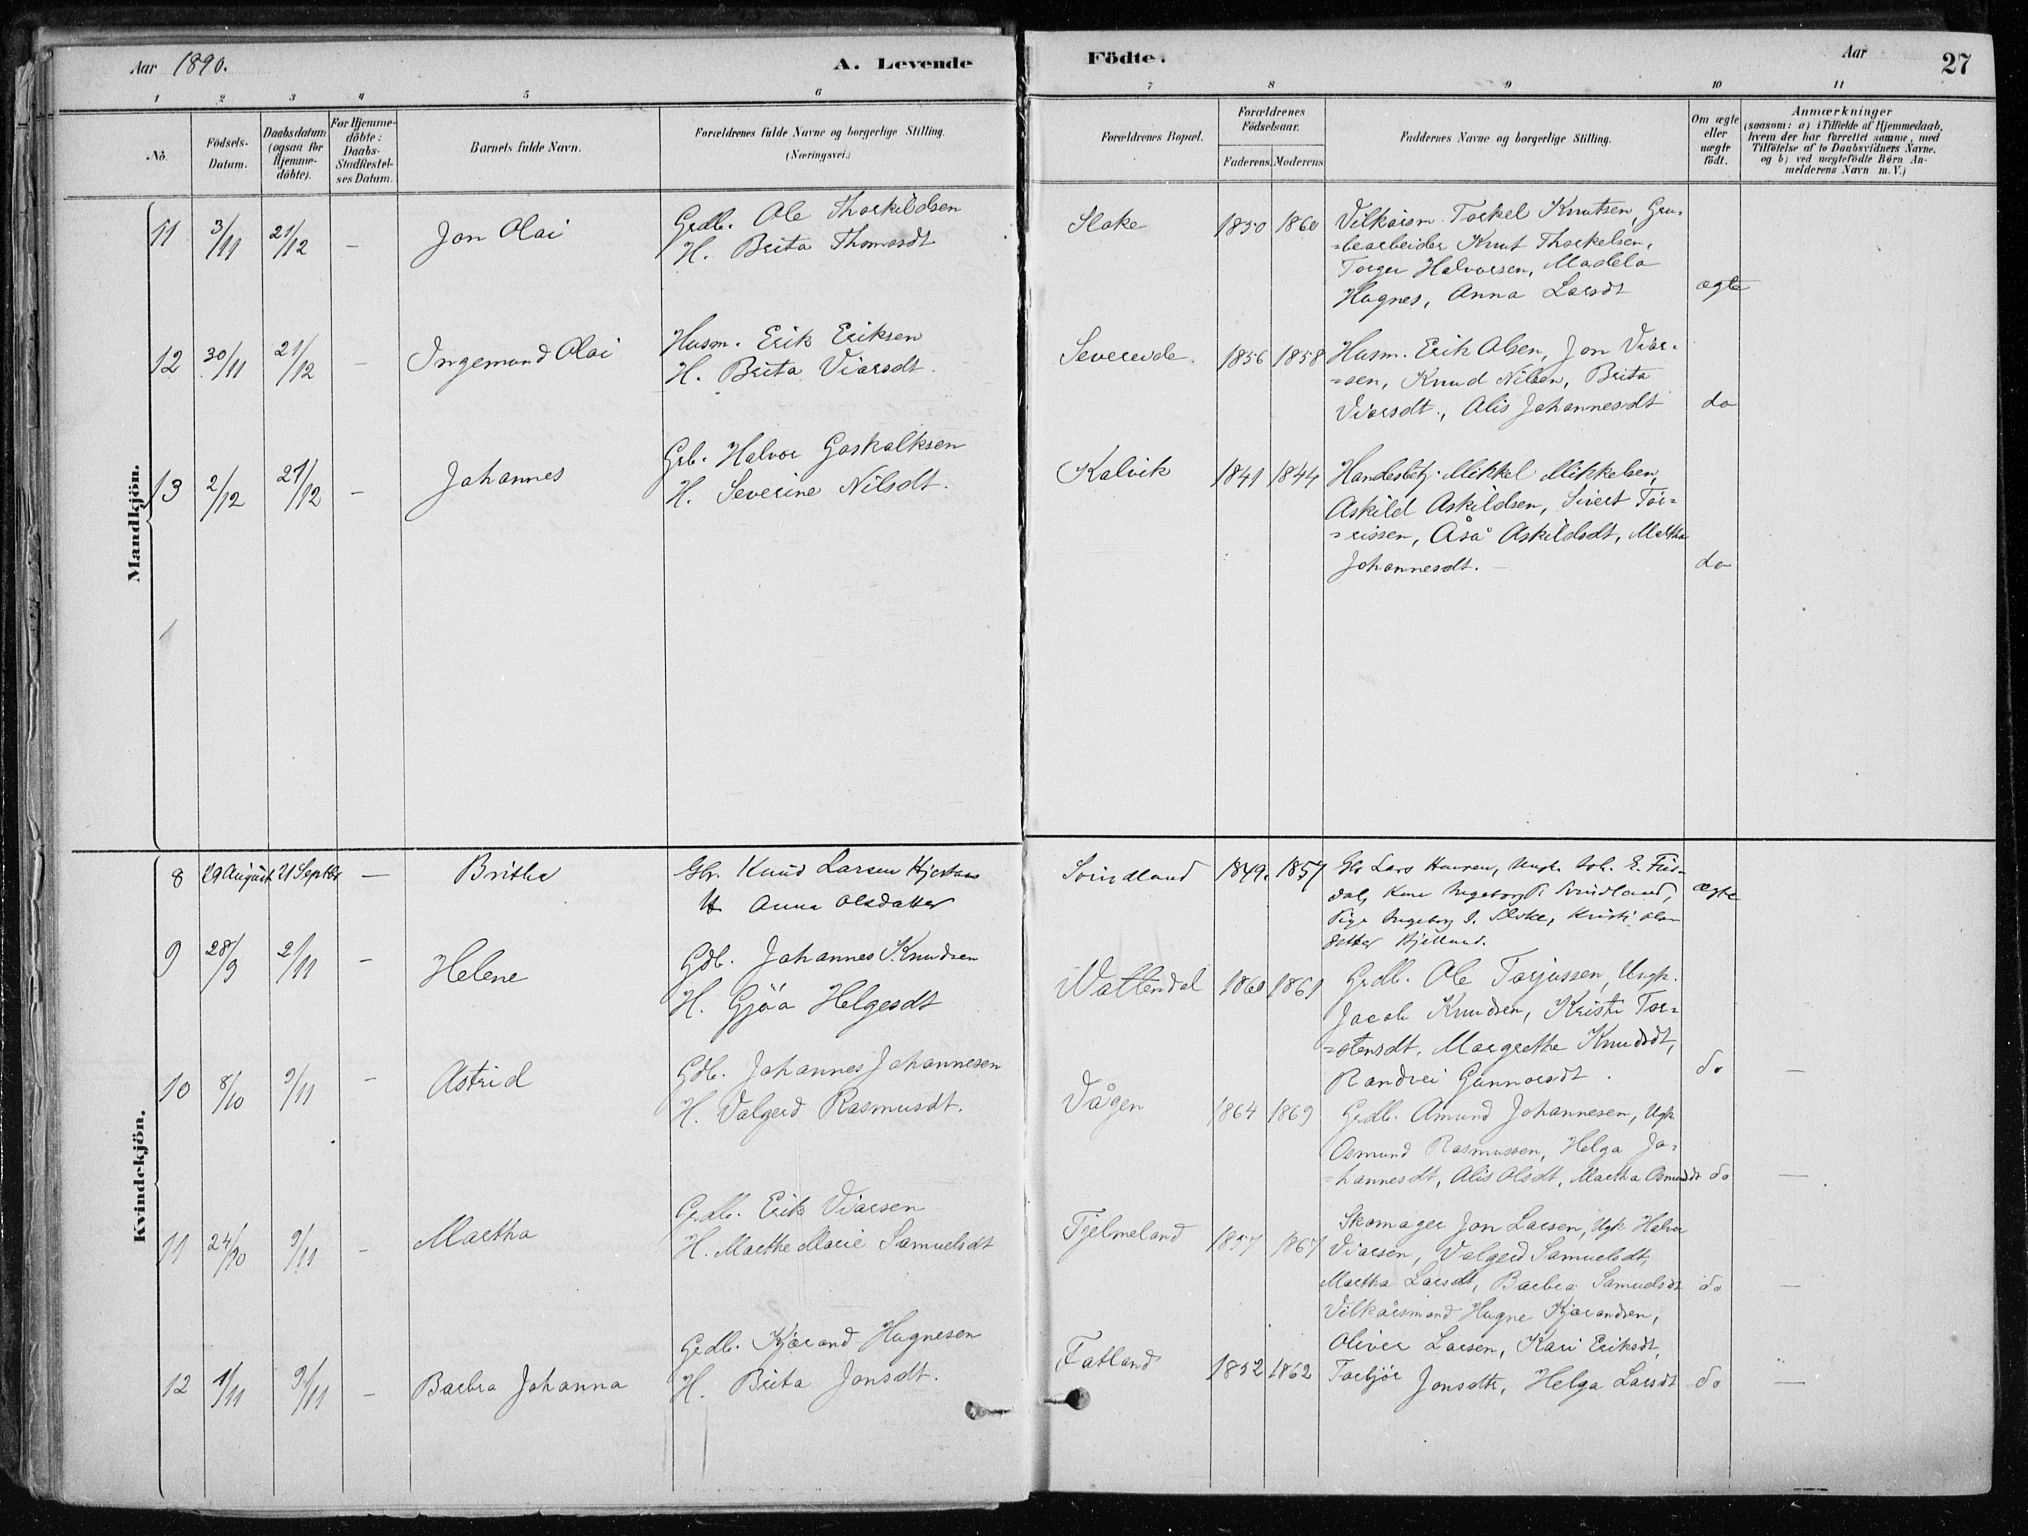 Aar 1890.
A. Levende
Födte.
Aar
27
1 2 3 4 5 6 7 8 9 10 11
No.
Födsels-
Datum.
Daabsdatum
(ogsaa for
Hjemme-
döbte).
For Hjemme-
döbte:
Daabs-
Stadfæstel-
ses Datum.
Barnets fulde Navn.
Forældrenes fulde Navne og borgerlige Stilling.
(Næringsvei.)
Forældrenes Bopæl.
Forældrenes
Födselsaar.
Faderens. Moderens.
Faddernes Navne og borgerlige Stilling.
Om ægte
eller
uægte
födt.
Anmærkninger
(saasom: a) i Tilfælde af Hjemmedaab,
hvem der har forrettet samme, med
Tilföielse af to Daabsvidners Navne.
og b) ved uægtefödte Börn An-
melderens Navn m. V.)
Mandkjön.
11 3/11 21/12 — Jon Olai
Grdb. Ole Thorkildsen
H. Brita Thomasdt
Sloke 1850 1860
Vilkårsm. Torkel Knutsen, Gru-
=bearbeider Knut Thorkelsen,
Torger Halvorsen, Madela
Hugnes, Anna Larsdt
ægte
12 30/11 21/12 — Ingemund Olai
Husm. Erik Eriksen
H. Brita Viarsdt.
Severeide 1856 1858
Husm. Erik Olsen, Jon Viar-
=sen, Knud Nilsen, Brita
Viarsdt., Alis Johannesdt
do
13 2/12 21/12 — Johannes
Grb. Halvor Goskalksen
H. Severine Nilsdt.
Kalvik 1841 1844
Handelsbetj. Mikkel Mikkelsen,
Askild Askildsen, Sivert Tor-
=rissen, Åså Askildsdt, Martha
Johannesdt. —
do
Kvindekjön.
8 29 August 21 Septbr — Britha
Gbr. Knud Larsen
H. Anna Olsdatter
Svindland 1849. 1857
Gbr Lars Hauren, Ungk. Joh. E. Fris-
dal, Kone Ingeborg P. Svindland,
Pige Ingeborg I. Sloke, Kristi Olas
datter Kjelland.
ægte
9 28/9 2/11 — Helene
Gdb. Johannes Knudsen
H. Gjöa Helgesdt
Vattendal 1860 1861
Grdb. Ole Torjussen, Ungk.
Jacob Knudsen, Kristi Tor-
=stensdt, Margrethe Knudsdt,
Randvei Gunnarsdt.
do —
10 8/10 9/11 — Astrid
Gdb. Johannes Johannesen
H. Valgerd Rasmusdt.
Vågen 1864 1869
Grdb. Amund Johannesen, Ugk
Osmund Rasmussen, Helga Jo-
=hannesdt, Alis Olsdt, Martha Osmundsdt
do —
11 24/10 9/11 — Martha
Grdb. Erik Viarsen
H. Marthe Marie Samuelsdt
Fjelmeland 1857 1867
Skomager Jon Larsen, Ugk Halvor
Viarsen, Valgerd Samuelsdt,
Martha Larsdt, Barbra Samuelsdt
do —
12 1/11 9/11 — Barbra Johanna
Grdb. Kjærand Hugnesen
H. Brita Jonsdt.
Fatland 1852 1862
Vilkårsmand Hugne Kjærandsen,
Oliver Larsen, Kari Eriksdt,
Torbjör Jonsdtr, Helga Larsdt
do —